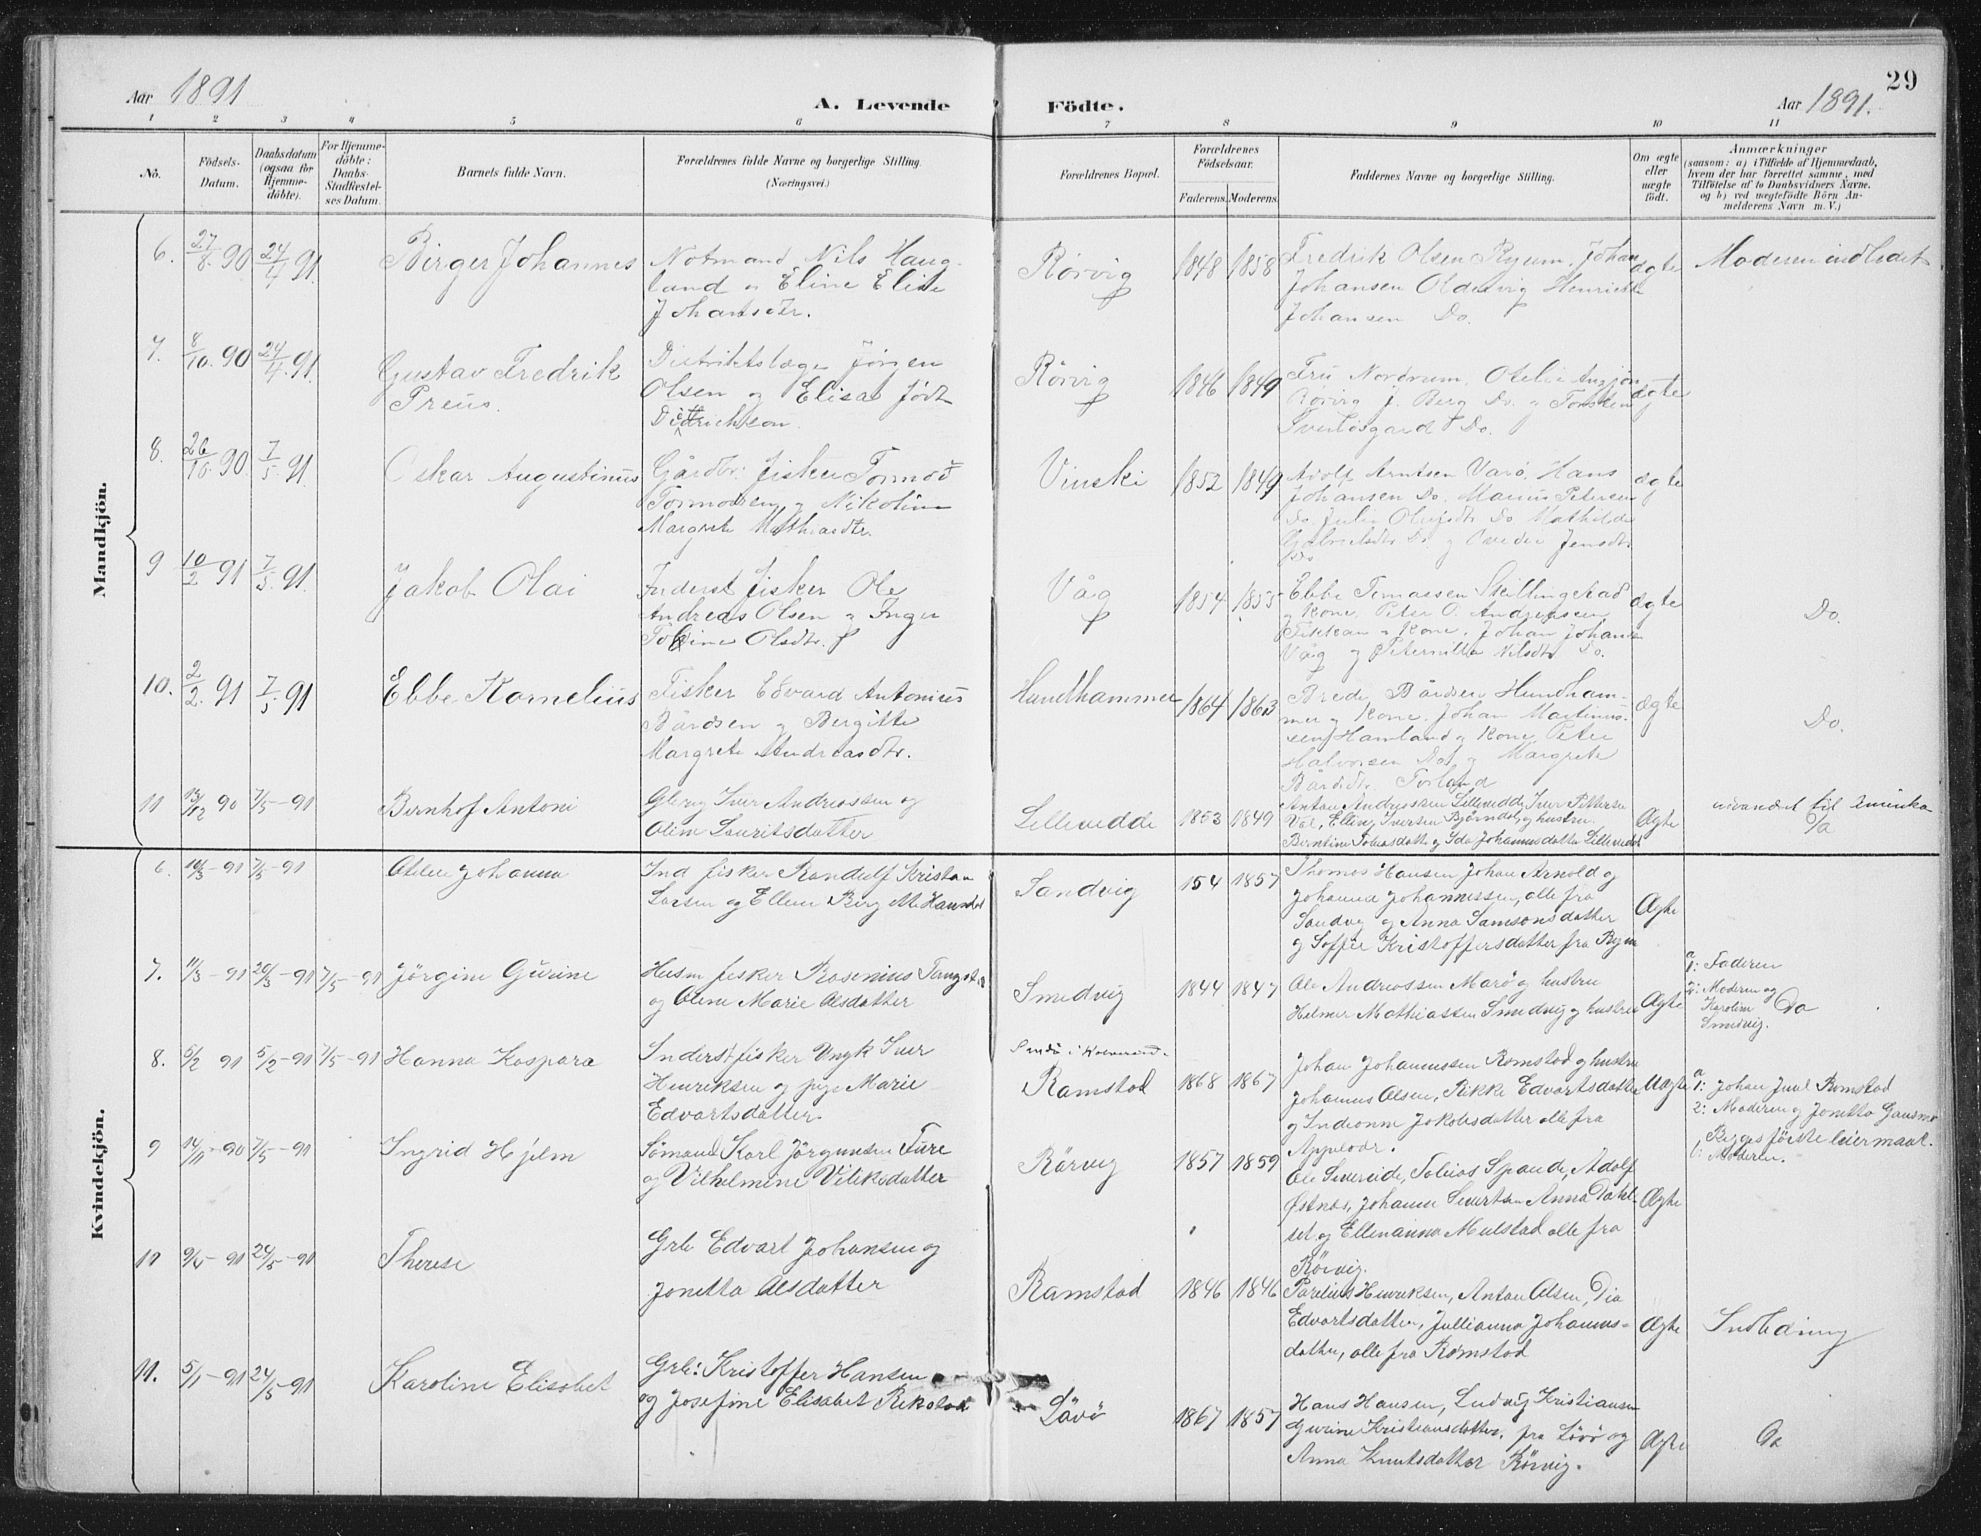 29
Aar 1891
A. Levende Födte.
Aar 1891.
1 2 3 4 5 6 7 8 9 10 11
No.
Födsels-Datum.
Daabsdatum (ogsaa for Hjemme-döbte).
For Hjemme-döbte: Daabs-Stadfæstel-ses Datum.
Barnets fulde Navn.
Forældrenes fulde Navne og borgerlige Stilling.
(Næringsvei.)
Forældrenes Bopæl.
Forældrenes Födselsaar.
Faderens. Moderens.
Faddernes Navne og borgerlige Stilling.
Om ægte eller uægte födt.
Anmærkninger
(saasom: a) i Tilfælde af Hjemmedaab,
hvem der har forrettet samme, med
Tilföielse af to Daabsvidners Navne,
og b) ved uægtefödte Börn An-
melderens Navn m. V.)
Mandkjön.
6. 27/8 90 24/4 91 Birger Johannes
Notmand Nils Haug-
land og Eline Elise
Johansdtr.
Rörvig 1848 1858
Fredrik Olsen Ryum, Johan
Johansen Oldervig Henriette
Johansen Do.
ægte Moderen indledet
7. 8/10 90 24/4 91 Gustav Fredrik
Preus.
Distriktslæge Jörgen
Olsen og Elisa født
Didrichson.
Rörvig 1846 1849
Fru Nordrum, Otelie
Rörvig j. Berg Do. og Torsten
Do.
ægte
8. 26/10 90 7/5 91 Oskar Augustinus
Gårdbr. fisker Tormod
Tormodsen og Nikoline
Margrete Mathiasdtr.
Vinski 1852 1849
Adolf Arntsen Varö, Hans
Johansen Do. Marius Petersen
Do. Julie Olufsdtr Do Mathilde
Gabrielsdtr Do og Ovedie Jensdtr
Do
ægte
9 10/2 91 7/5 91 Jakob Olai
Inderst fisker Ole
Andreas Olsen og Inger
Olsdtr.
Våg 1854 1855
Ebbe Tomassen Skillingstad
og Kone, Peter O. Andreassen
og Kone, Johan Johans
Våg og Peternille Nilsdtr Do.
ægte Do.
10. 2/2 91 7/5 91 Ebbe Kornelius
Fisker Edvard Antonius
Bårdsen og Bergitte
Margrete Andreasdtr.
Hundhammer 1864 1863
Brede Bårdsen Hundham-
mer og Kone, Johan Martinus-
sen Hamland og Kone, Peter
Halvorsen Do og Margrete
Bårdsdtr. Torland
ægte Do.
11 13/12 90 7/5 - 91 Bernhof Antoni
Iver Andreassen og
Oline Lauritsdatter
Lillevedde 1853 1849
Anton Andreassen Lillevedde, Iver Pettersen
Val, Ellen Iversen Bjørndal og hustru
Berntine Tobiasdatter og Ida Johannesdatter Lillevedde
Ægte udvandret til Amerika
Kvindekjön.
6. 10/3 - 91 7/5 - 91 Otelie Johanna
Ind fisker Randulf Kristian
Larsen og Ellen Berg M. Hansdtr
Sandvig 154 1857
Thomas Hansen Johan Arnold og
Johanna Johannessen, alle fra
Sandvig og Anna Samsonsdatter
og Soffie Kristoffersdatter fra Ryum
Ægte
7. 11/3 - 91 20/3 - 91 7/5 - 91 Jörgine Gurine
Husm fisker Rosenius Tangstad
og Oline Marie Olsdatter
Smedvig 1844 1847
Ole Andreassen Marö og hustru
Helmer Mathiassen Smedvig og hustru
Ægte
a
1: Faderen
2: Moderen og
Karoline
Smedvig.
Do
8. 5/2 91 5/2 - 91 7/5 - 91 Hanna Kaspara
Inderst fisker Ungk Iver
Henriksen og pige Marie
Edvartsdatter.
Ramstad 1868 1867
Johan Johannessen Ramstad og hustru
Johannes Olsen, Rikke Edvartsdatter
og Indianna Jakobsdatter alle fra
Uægte
a
1: Johan Juul Ramstad
2: Moderen og Jonetta
Begges förste leiermaal.
b: Moderen.
9 14/11 - 90 7/5 - 91 Ingrid Hjelm
Sømand Karl Jörgensen Fure
og Vilhelmine Vitiksdatter
Rörvig 1857 1859
Ole Sivereide, Tobias Spande, Adolf
Østnes, Johanna Sivertsen Anna Dahl-
set og Ellenanna Mulstad alle fra
Rörvig.
Ægte
10 9/5 - 91 24/5 - 91 Therese
Grb Edvart Johansen og
Jonetta Olsdatter
Ramstad 1846 1846
Parelius Henriksen, Anton Olsen,
Edvartsdatter, Jullianna Johannes-
datter, alle fra Ramstad
Ægte Indledning
11. 5/1 - 91 24/5 - 91 Karoline Elisabet
Grb: Kristoffer Hansen
og Josefine Elisabet Rikstad
Lövö 1867 1857
Hans Hansen, Ludvig Kristiansen
Gurine Kristiansdatter. fra Lövö og
Anna Knutsdatter Rörvig.
Ægte Do